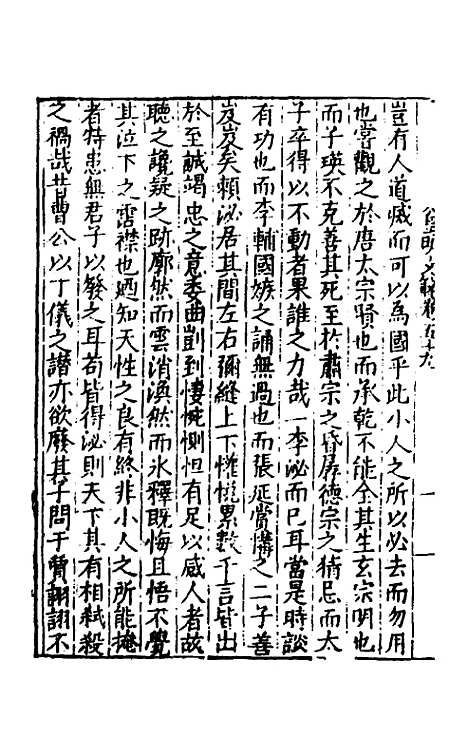 豈有人道滅而可以爲國乎此小人之所以必去而勿用
也嘗觀之於唐太宗賢也而承乾不能全其生玄宗明也
而子瑛不克善其死至於肅宗之昏孱德宗之猜忌而太
子卒得以不動者果誰之力哉一李泌而已耳當是時談
有功也而李輔國嫉之誦無過也而張延賞搆之二子善
岌岌矣賴泌居其間左右彌縫上下惟累數千言皆出
於至誠竭忠之意委曲剴到悽惋惻怛有足以感人者故
聽之讒疑之跡廓然而雲消渙然而氷釋既悔且悟不覺
其泣下之霑襟也廼知天性之良有終非小人之所能掩
者特患無君子以發之耳苟皆得泌則天下其有相弑殺
之禍哉昔曹公以丁儀之譖亦欲廢其子問于賈詡詡不
皇明文衡卷五十九
一